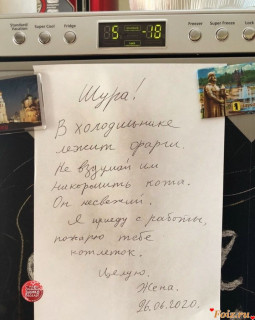 Standard/Vacation
Super Cool
Fridge
5
-18
Freezer
Super Freeze
Lock
Шура!
В холодильнике
лежит фарш.
Не вздумай им
накормить кота.
Он несвежий.
Я приеду с работы,
пожарю тебе
котлеток.
Целую.
Жена.
26.06.2020.
fotz.ru